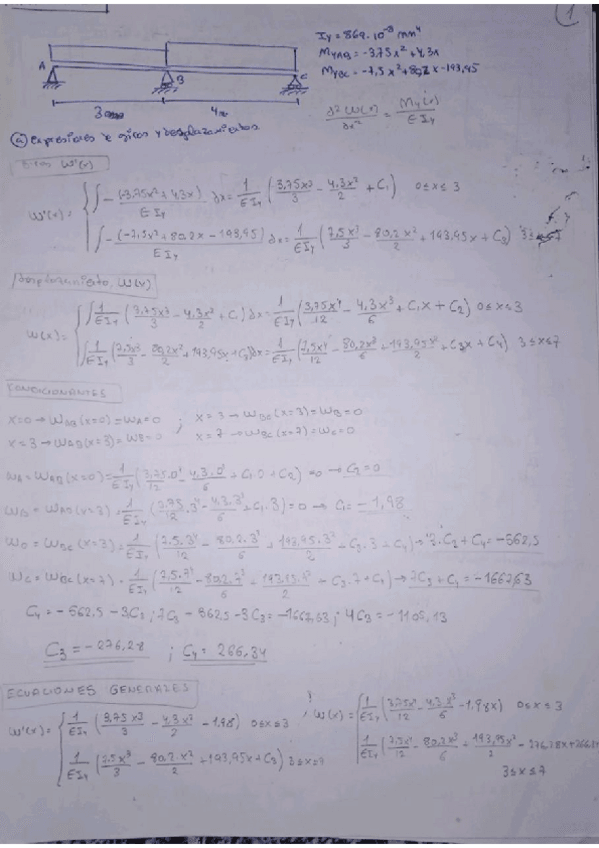 1
I_Y = 869·10^-8 mm^4
M_YAB = -3,75x² + 4,3x
M_YBC = -7,5x² + 80,2x - 193,45
A B C
3 4m
∂²W(x)/∂x² = M_Y(x)/EI_Y
ⓐ Expresiones de giros y desplazamientos
Giros W'(x)
W'(x) = { ∫ -(-3,75x² + 4,3x)/EI_Y dx = 1/EI_Y (3,75x³/3 - 4,3x²/2 + C₁) 0≤x≤3
∫ -(-7,5x² + 80,2x - 193,45)/EI_Y dx = 1/EI_Y (7,5x³/3 - 80,2x²/2 + 193,45x + C₃) 3≤x≤7
Desplazamiento W(x)
W(x) = { ∫ 1/EI_Y (3,75x³/3 - 4,3x²/2 + C₁) dx = 1/EI_Y (3,75x⁴/12 - 4,3x³/6 + C₁x + C₂) 0≤x≤3
∫ 1/EI_Y (7,5x³/3 - 80,2x²/2 + 193,45x + C₃) dx = 1/EI_Y (7,5x⁴/12 - 80,2x³/6 + 193,45x²/2 + C₃x + C₄) 3≤x≤7
CONDICIONANTES
x=0 → W_AB(x=0) = W_A = 0 ; x=3 → W_BC(x=3) = W_B = 0
x=3 → W_AB(x=3) = W_B = 0 x=7 → W_BC(x=7) = W_C = 0
W_A = W_AB(x=0) = 1/EI_Y (3,75·0⁴/12 - 4,3·0³/6 + C₁·0 + C₂) = 0 → C₂ = 0
W_B = W_AB(x=3) = 1/EI_Y (3,75·3⁴/12 - 4,3·3³/6 + C₁·3) = 0 → C₁ = -1,98
W_B = W_BC(x=3) = 1/EI_Y (7,5·3⁴/12 - 80,2·3³/6 + 193,45·3²/2 + C₃·3 + C₄) → 3·C₃ + C₄ = -562,5
W_C = W_BC(x=7) = 1/EI_Y (7,5·7⁴/12 - 80,2·7³/6 + 193,45·7²/2 + C₃·7 + C₄) → 7C₃ + C₄ = -1667,63
C₄ = -562,5 - 3C₃ ; 7C₃ - 562,5 - 3C₃ = -1667,63 ; 4C₃ = -1105,13
C₃ = -276,28 ; C₄ = 266,34
ECUACIONES GENERALES
W'(x) = { 1/EI_Y (3,75x³/3 - 4,3x²/2 - 1,98) 0≤x≤3
1/EI_Y (7,5x³/3 - 80,2x²/2 + 193,45x + C₃) 3≤x≤7
; W(x) = { 1/EI_Y (3,75x⁴/12 - 4,3x³/6 - 1,98x) 0≤x≤3
1/EI_Y (7,5x⁴/12 - 80,2x³/6 + 193,45x²/2 - 276,28x + 266,34)
3≤x≤7